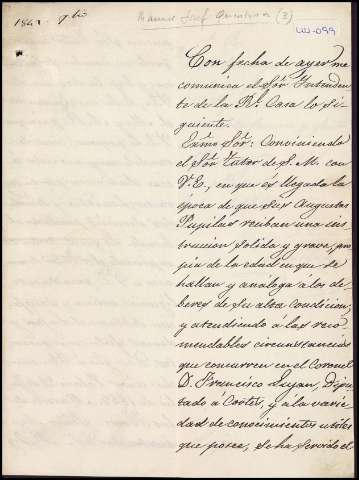 1841
Manuel José Quintana (3)
LIU-099
Con fecha de ayer me
comunica el Sõr Intenden
te de la Rl. Casa lo si-
guiente.
Exmo Sõr: Conviniendo
el Sõr Tutor de S. M. con
V. E., en que és llegada la
época de que sus Augustas
Pupilas reciban una ins
truccion solida y grave, pro
pia de la edad en que se
hallan y análoga á los de
beres de su alta condicion;
y atendiendo á las reco-
mendables circunstancias
que concurren en el Coronel
D. Francisco Luxan, Dipu
tado á Cortes, y á la varie
dad de conocimientos utiles
que posee, se ha servido el